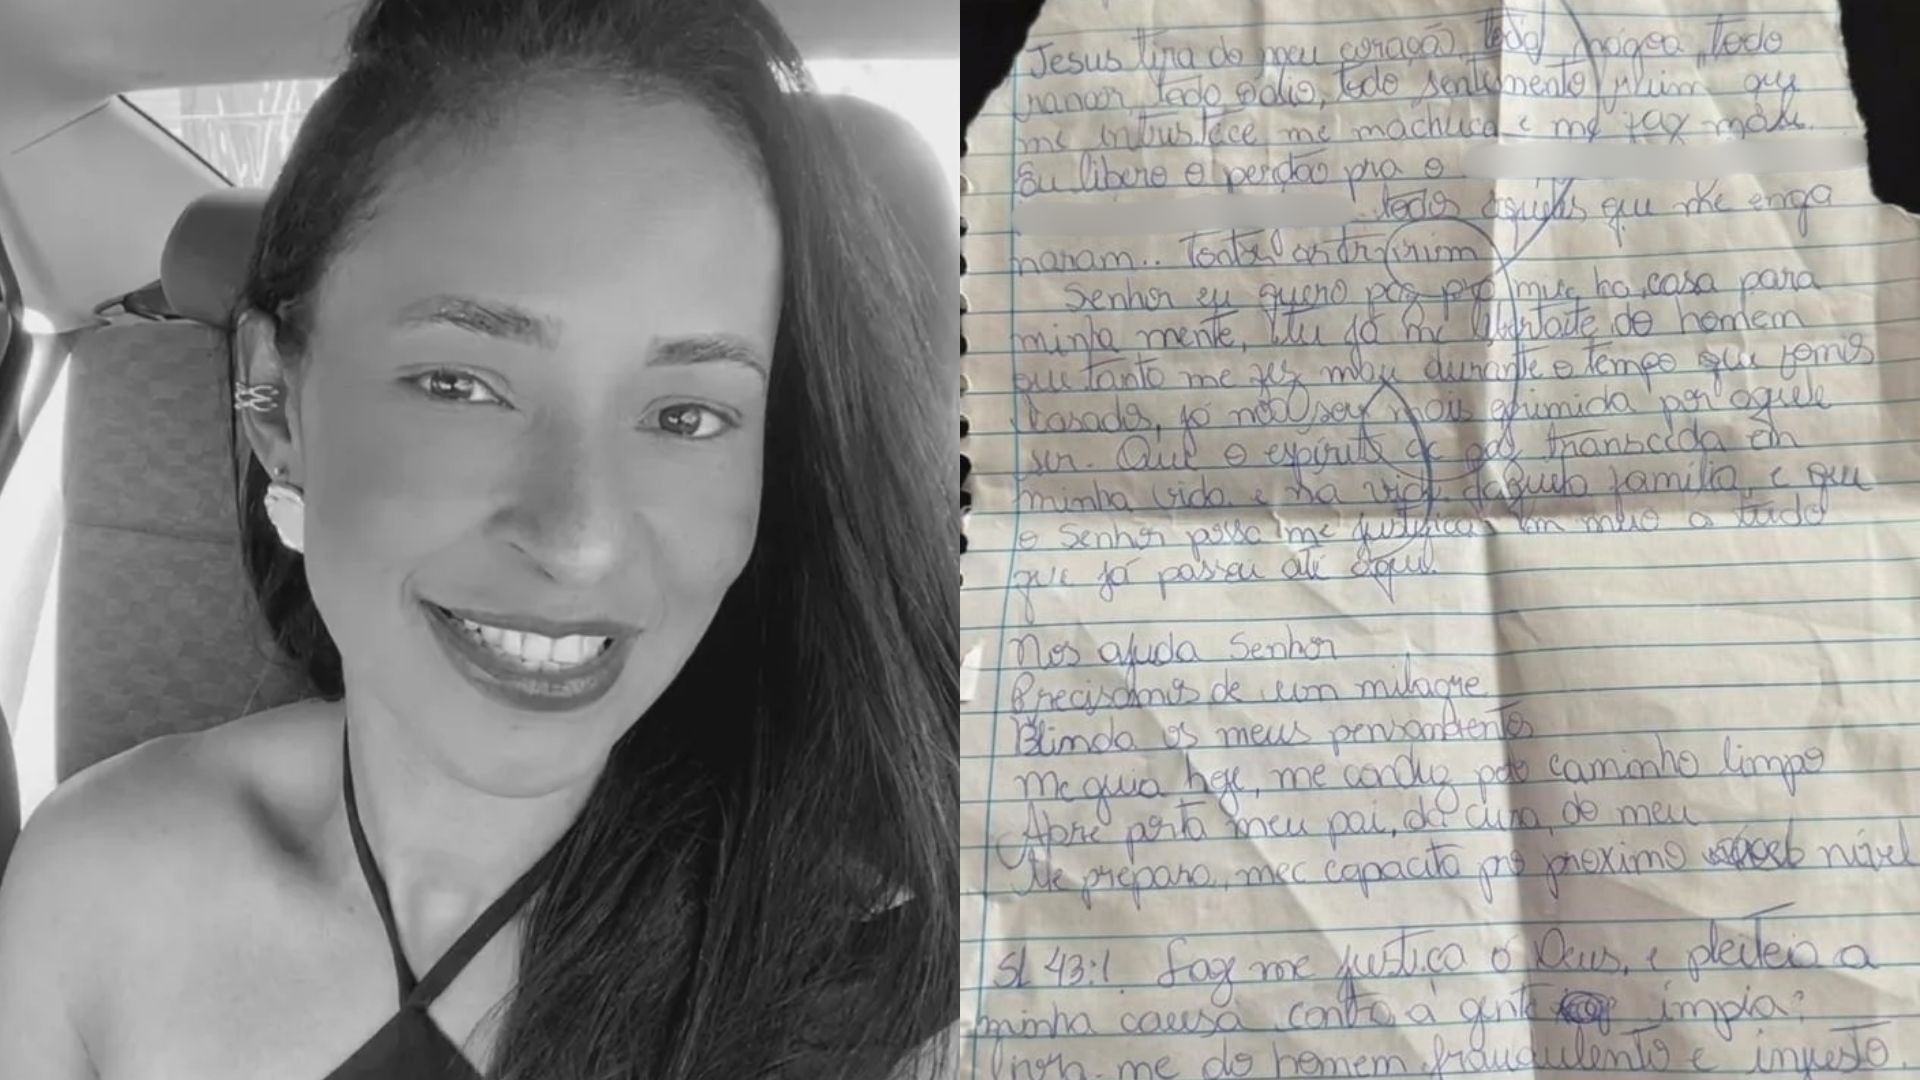 Jesus tira do meu coração toda mágoa, todo
rancor todo odio, todo sentimento ruim que
me intristece me machuca e me faz mau.
Eu libero o perdão pra o
todos aqueles que me enga
naram..
Senhor eu quero paz pra minha casa para
minha mente, tu já me libertaste do homem
que tanto me fez mau durante o tempo que fomos
casados, já não sou mais oprimida por aquele
ser. Que o espírito de paz transceda em
minha vida e na vida daquela família, e que
o Senhor possa me justificar em meio a tudo
que já passou até aqui.
Nos ajuda Senhor
Precisamos de um milagre
Blinda os meus pensamentos
Me guia hoje, me conduz pelo caminho limpo
Abre porta meu pai, de cura, de meu
Me prepara, me capacita pro proximo nível
Sl 43:1. Faz me justiça ó Deus, e pleiteia a
minha causa contra a gente ímpia;
livra-me do homem fraudulento e injusto.